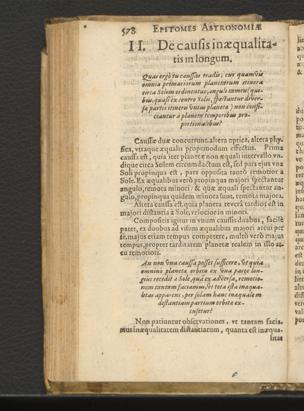 578 EPITOMES ASTRONOMIÆ
II. De causis inæqualita-
tis in longum.
Quas ergò tu caussas tradis, cur quamvis
omnia primariorum planetarum itinera
circa Solem ordinentur, anguli tamen (qui-
bus, quasi ex centro Solis, spectantur diver-
sæ partes itineris unius planetæ) non confi-
ciantur a planeta temporibus pro-
portionalibus?
Caussæ duæ concurrunt, altera optica, altera phy-
sica, utraque æqualis propemodum effectus. Prima
caussa est, quia iter planetæ non æquali intervallo un-
dique circa Solem circumductum est, sed pars ejus una
Soli propinqua est, pars opposita tantò remotior à
Sole. Ex æqualibus verò propinqua majori spectantur
angulo, remota minori: & quæ æquali spectantur an-
gulo, propinqua quidem minora sunt, remota majora.
Altera caussa est, quia planeta reverâ tardior est in
majori distantia à Sole, velocior in minori.
Compositis igitur in unum caussis duabus, facilè
patet, ex duobus ad visum æqualibus majori arcui per
se majus etiam tempus competere, multò verò majus
tempus, propter tarditatem planetæ realem in isto ar-
cu remotiori.
An non una caussa posset sufficere, ut quia
omninò planetæ orbita ex una parte lon-
gius recedit à Sole, quàm ex adversa, remotio-
nem tantam faciamus, ut tota ista inæqua-
litas apparens, per solam hanc inæqualem
distantiam partium orbitæ ex-
cusetur?
Non patiuntur observationes, ut tantam facia-
mus inæqualitatem distantiarum, quanta est inæqua-
litas